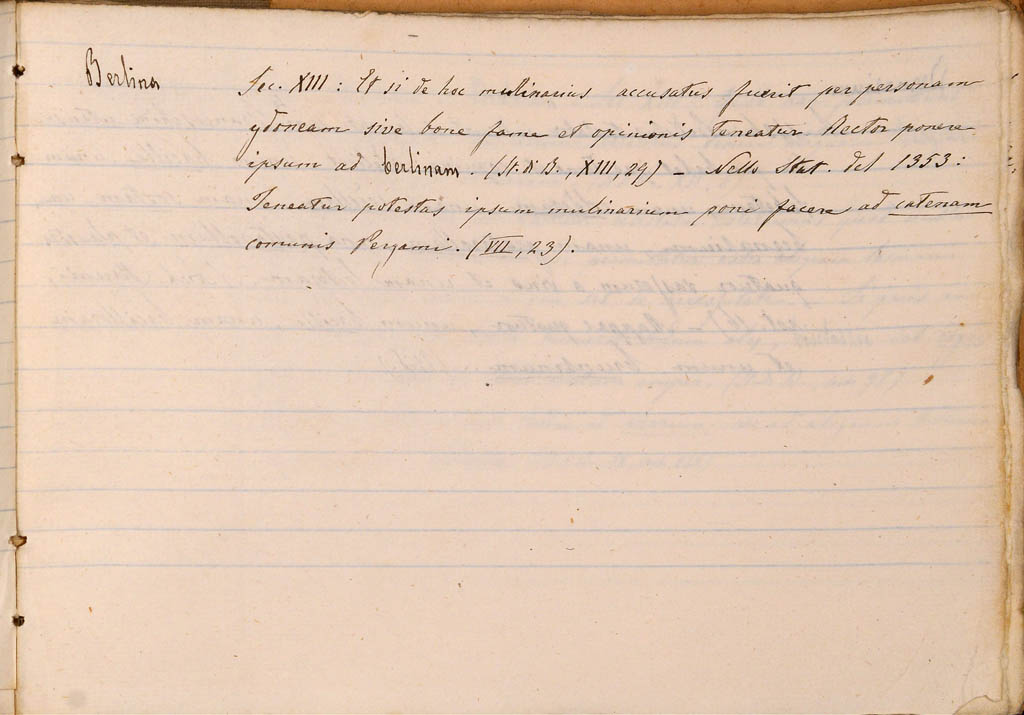 Berlina
Sec. XIII : Et si de hoc mulinarius accusatus fuerit per personam
ydoneam sive bone fame et opinionis teneatur Rector ponere
ipsum ad berlinam. (St. di B., XIII, 29) - Nello Stat. del 1353:
Teneatur potestas ipsum mulinarium poni facere ad catenam
comunis Pergami. (VII, 23).